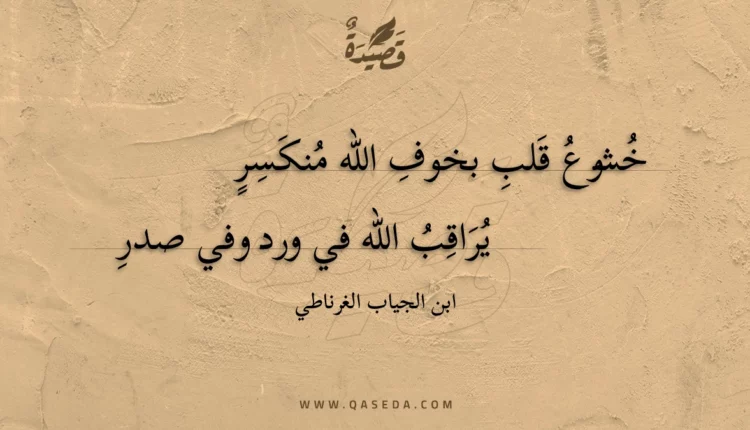 قَصِيْدَةٌ
خُشوعُ قَلبِ بخوفِ الله مُنكَسِرٍ
يُرَاقِبُ الله في ورد وفي صدرِ
ابن الجياب الغرناطي
WWW.QASEDA.COM